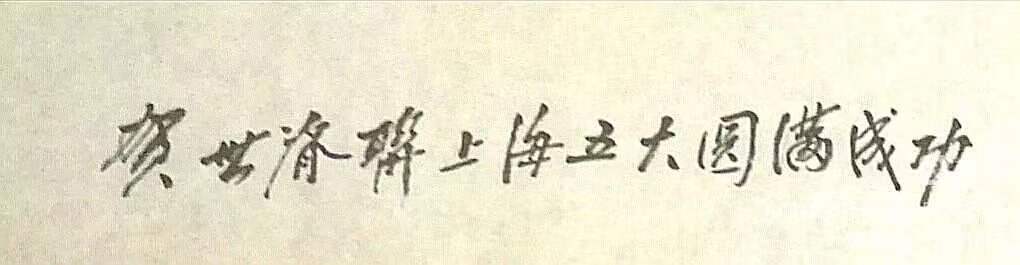 贺世脊聯上海五大圆满成功